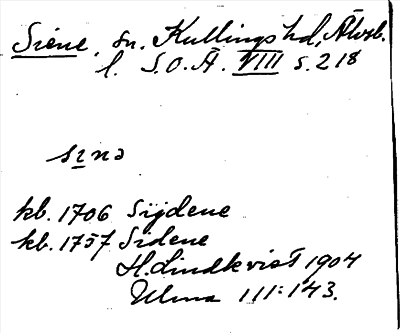 Siene, sn. Kullings hd, Älvsb.
l. S.O.Ä. VIII s. 218
sɪnə
kb. 1706 Sijdene
kb. 1757 Sidene
H. Lindkvist 1904
Ulma 111:143.